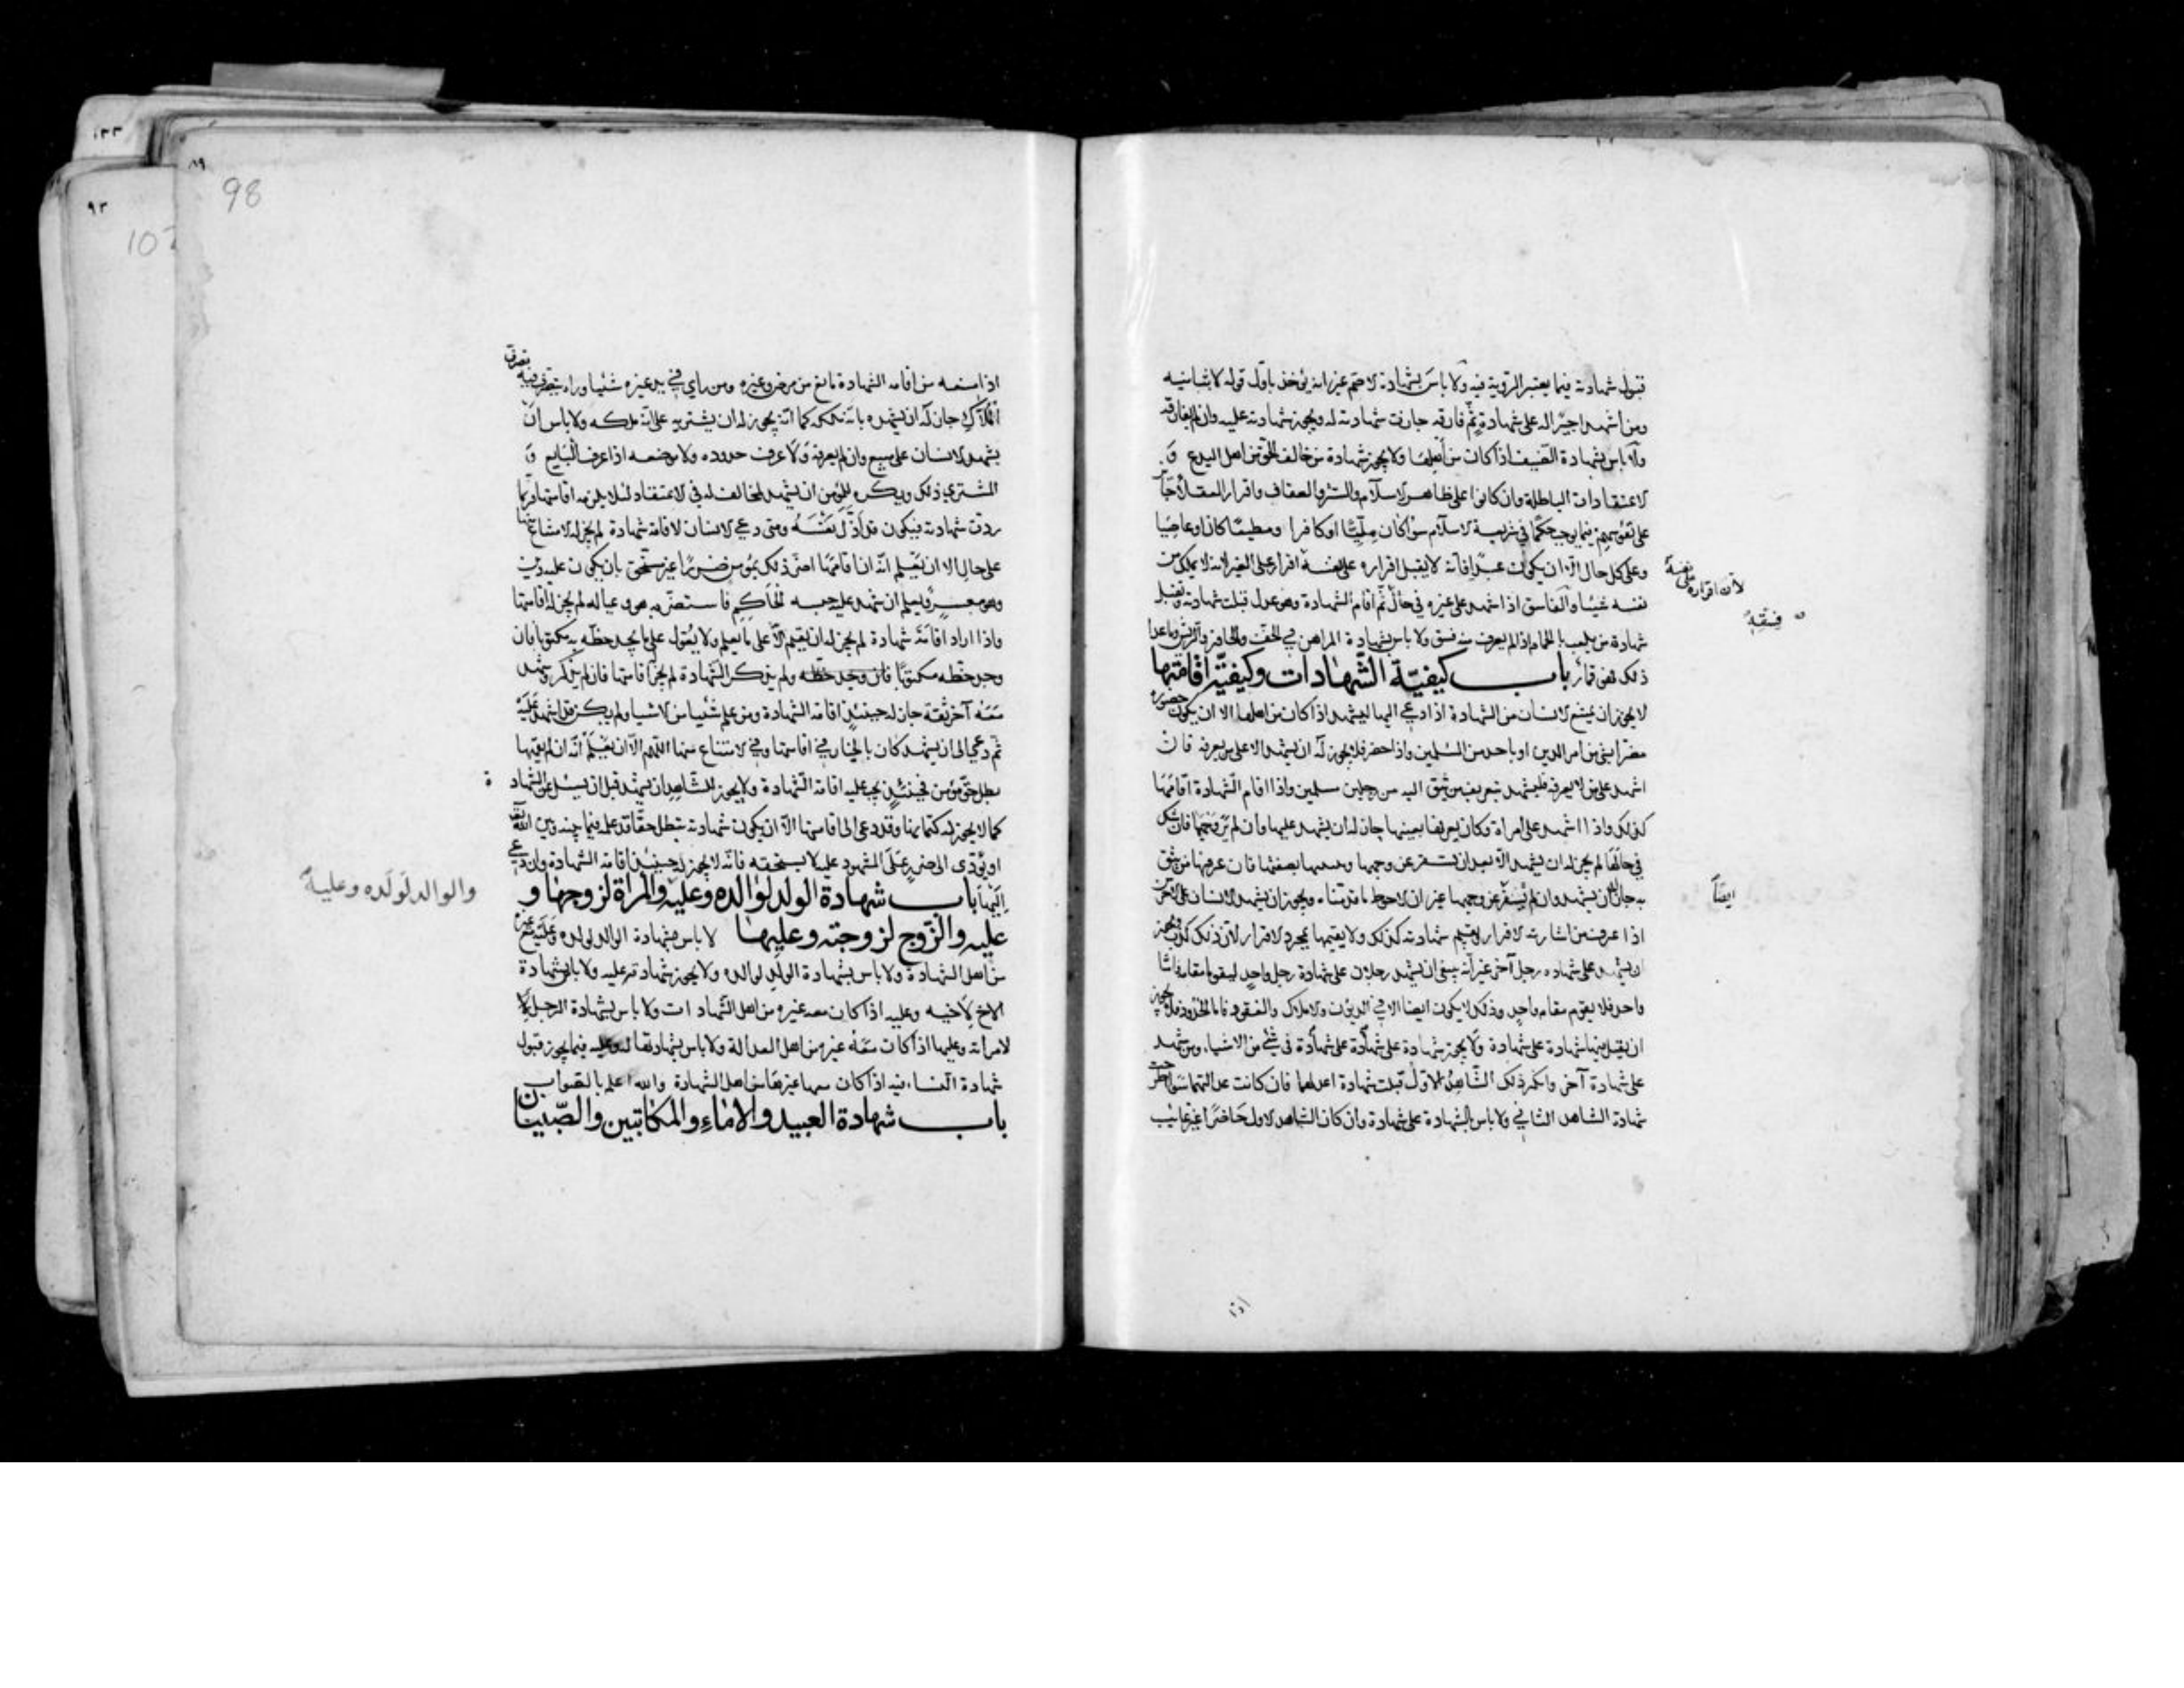 قبول شهادته فيما يعتبر الرؤية فيه ولا باس بشهادة الاصم غير انه يؤخذ باول قوله لا بثانيه
ومن اشهد اجيرا له على شهادة ثم فارقه جازت شهادته له ويجوز شهادته عليه وان لم يفارقه
ولا باس بشهادة الضيف اذا كان من اهلها ولا يجوز شهادة من خالف الحق من اهل البدع و
الاعتقادات الباطلة وان كانوا على ظاهر الاسلام والستر والعفاف واقرار العقلاء جائز
على نفوسهم فيما يوجب حكما في شريعة الاسلام سواء كان مليا او كافرا ومطيعا كان او عاصيا
وعلى كل حال الا ان يكون عبدا فانه لا يقبل اقراره على نفسه اقرار على الغير لانه لا يملك من
لان اقراره على نفسه
نفسه شيئا والفاسق اذا اشهد على غيره في حال ثم اقام الشهادة وهو عدل قبلت شهادته وتقبل
فسقه
شهادة من يلعب بالحمام اذا لم يعرف منه فسق ولا باس بشهادة المراهن في الخف والحافر والريش وما عدا
ذلك فهو قمار باب كيفية الشهادات وكيفية اقامتها
لا يجوز ان يمتنع الانسان من الشهادة اذا دعي اليها ليشهد اذا كان من اهلها الا ان يكون حضوره
مضرا بشي من امر الدين او باحد من المسلمين واذا حضر فلا يجوز له ان يشهد الا على من يعرفه فان
اشهد على من لا يعرفه فليشهد بتعريف من يثق اليه من رجلين مسلمين واذا اقام الشهادة اقامها
كذلك واذا اشهد على امراة وكان يعرفها بعينها جاز له ان يشهد عليها وان لم ير وجهها فان شك
في حالها لم يجز له ان يشهد الا بعد ان تسفر عن وجهها ويتبينها بصفتها فان عرفها من يثق
به جاز له ان يشهد وان لم تسفر عن وجهها غير ان الاحوط ما قدمناه ويجوز ان يشهد الانسان على الاخرس
ايضا
اذا عرف من اشارته الاقرار ويقيم شهادته كذلك ولا يقيمها بمجرد الاقرار لان ذلك كذب ويجوز
ان يشهد على شهادة رجل آخر غير انه ينبغي ان يشهد رجلان على شهادة رجل واحد ليقوما مقامه فاما
واحد فلا يقوم مقام واحد وذلك لا يكون ايضا الا في الديون والاملاك والعقود فاما الحدود فلا يجوز
ان يقبل فيها شهادة على شهادة ولا يجوز شهادة على شهادة على شهادة في شيء من الاشياء ومن شهد
على شهادة آخر وانكر ذلك الشاهد الاول قبلت شهادة اعدلهما فان كانت عدالتهما سواء طرحت
شهادة الشاهد الثاني ولا باس بالشهادة على شهادة وان كان الشاهد الاول حاضرا غير غائب
اذا
١٣٣
٨٩
98
٩٣
اذا منعه من اقامة الشهادة مانع من مرض وغيره ومن راي في يد غيره شيئا وراه يتصرف فيه تصرف
الملاك جاز له ان يشهد بانه ملكه كما انه يجوز له ان يشتريه على انه ملكه ولا باس ان
يشهد الانسان على مبيع وان لم يعرفه ولا عرف حدوده ولا موضعه اذا عرف البايع و
المشتري ذلك ويكره للمؤمن ان يشهد لمخالف له في الاعتقاد لئلا يلزمه اقامتها فربما
ردت شهادته فيكون قد اذل نفسه ومتى دعي الانسان لاقامة شهادة لم يجز له الامتناع منها
على حال الا ان يعلم انه ان اقامها اضر ذلك بمؤمن ضررا غير مستحق بان يكون عليه دين
وهو معسر ويعلم ان شهد عليه حبسه الحاكم فاستضر به هو وعياله لم يجز له اقامتها
واذا اراد اقامة شهادة لم يجز له ان يقيم الا على ما يعلم ولا يعول على ما يجد خطه به مكتوبا فان
وجد خطه مكتوبا ولم يذكر الشهادة لم يجز اقامتها فان لم يذكر وشهد
معه آخر ثقة جاز له حينئذ اقامة الشهادة ومن علم شيئا من الاشياء ولم يكن قد اشهد عليه
ثم دعي الى ان يشهد كان بالخيار في اقامتها وفي الامتناع منها اللهم الا ان يعلم انه ان لم يقمها
بطل حق مؤمن فحينئذ يجب عليه اقامة الشهادة ولا يجوز للشاهد ان يشهد قبل ان يسئل عن الشهادة
كما لا يجوز له كتمانها وقد دعي الى اقامتها الا ان يكون شهادته تبطل حقا قد علمه فيما بينه وبين الله تعالى
او يؤدي الى ضرر على المشهود عليه لا يستحقه فانه لا يجوز له حينئذ اقامة الشهادة وان دعي
اليها باب شهادة الولد لوالده وعليه والمراة لزوجها و
والوالد لولده وعليه
عليه والزوج لزوجته وعليها لا باس بشهادة الوالد لولده وعليه مع غيره
من اهل الشهادة ولا باس بشهادة الولد لوالده ولا يجوز شهادته عليه ولا باس بشهادة
الاخ لاخيه وعليه اذا كان معه غيره من اهل الشهادات ولا باس بشهادة الرجل
لامراته وعليها اذا كان معه غيره من اهل العدالة ولا باس بشهادتها له وعليه فيما يجوز قبول
شهادة النساء فيه اذا كان معها غيرها من اهل الشهادة والله اعلم بالصواب
باب شهادة العبيد والاماء والمكاتبين والصبيان